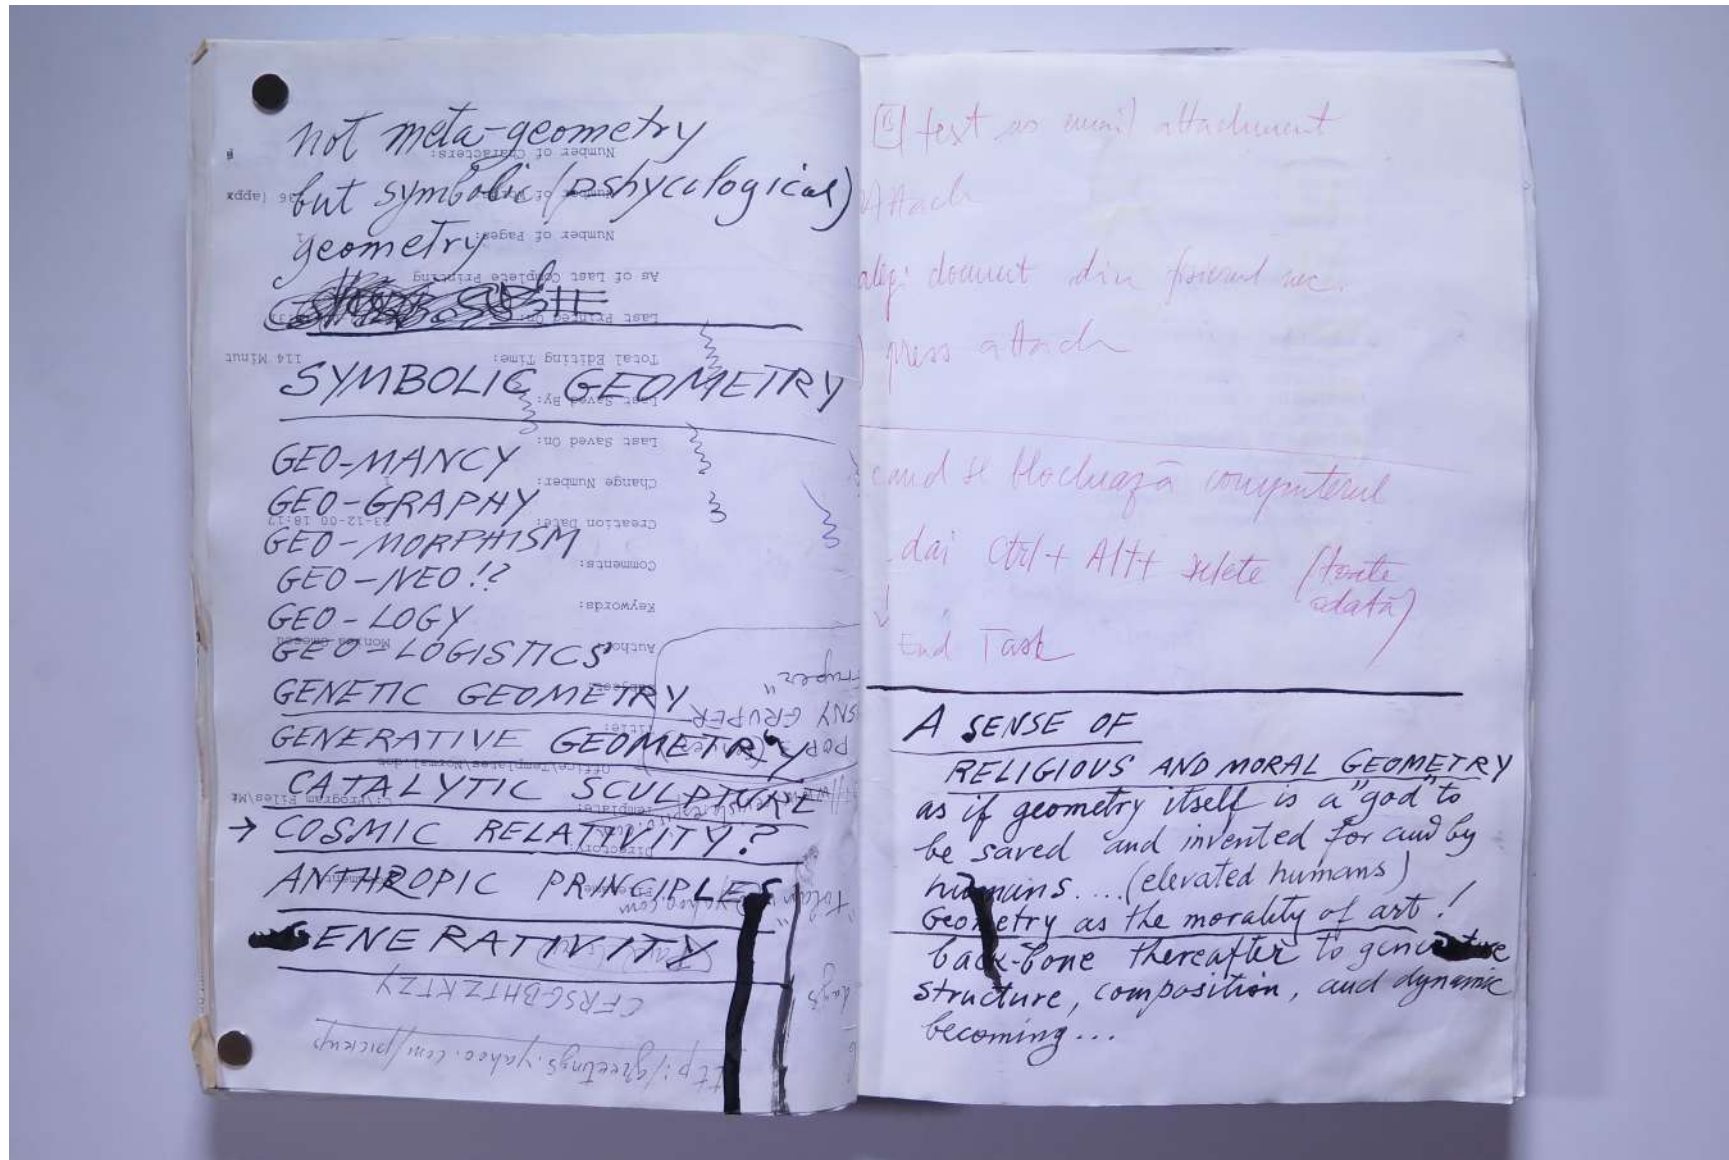 not meta-geometry
but symbolic (pshycological)
geometry
SYMBOLIC GEOMETRY
GEO-MANCY
GEO-GRAPHY
GEO-MORPHISM
GEO-NEO!?
GEO-LOGY
GEO-LOGISTICS
GENETIC GEOMETRY
GENERATIVE GEOMETRY
CATALYTIC SCULPTURE
→ COSMIC RELATIVITY?
ANTHROPIC PRINCIPLES
GENERATIVITY
CFRSGBHTZKTZY
http://greetings.yahoo.com/pickup
Number of Characters:
Number of Pages: 1
As of Last Complete Printing
Last Printed On:
Total Editing Time: 114 Minut
Last Saved By:
Last Saved On:
Change Number:
Creation Date: 23-12-00 18:17
Comments:
Keywords:
Author:
Title:
Template:
Directory:
text as email attachment
Attach
document din
press attach
cand se blochează computerul
dai Ctrl + Alt + delete (toate
odată)
End Task
A SENSE OF
RELIGIOUS AND MORAL GEOMETRY
as if geometry itself is a "god" to
be saved and invented for and by
humans....(elevated humans)
Geometry as the morality of art!
back-bone thereafter to generative
structure, composition, and dynamic
becoming...